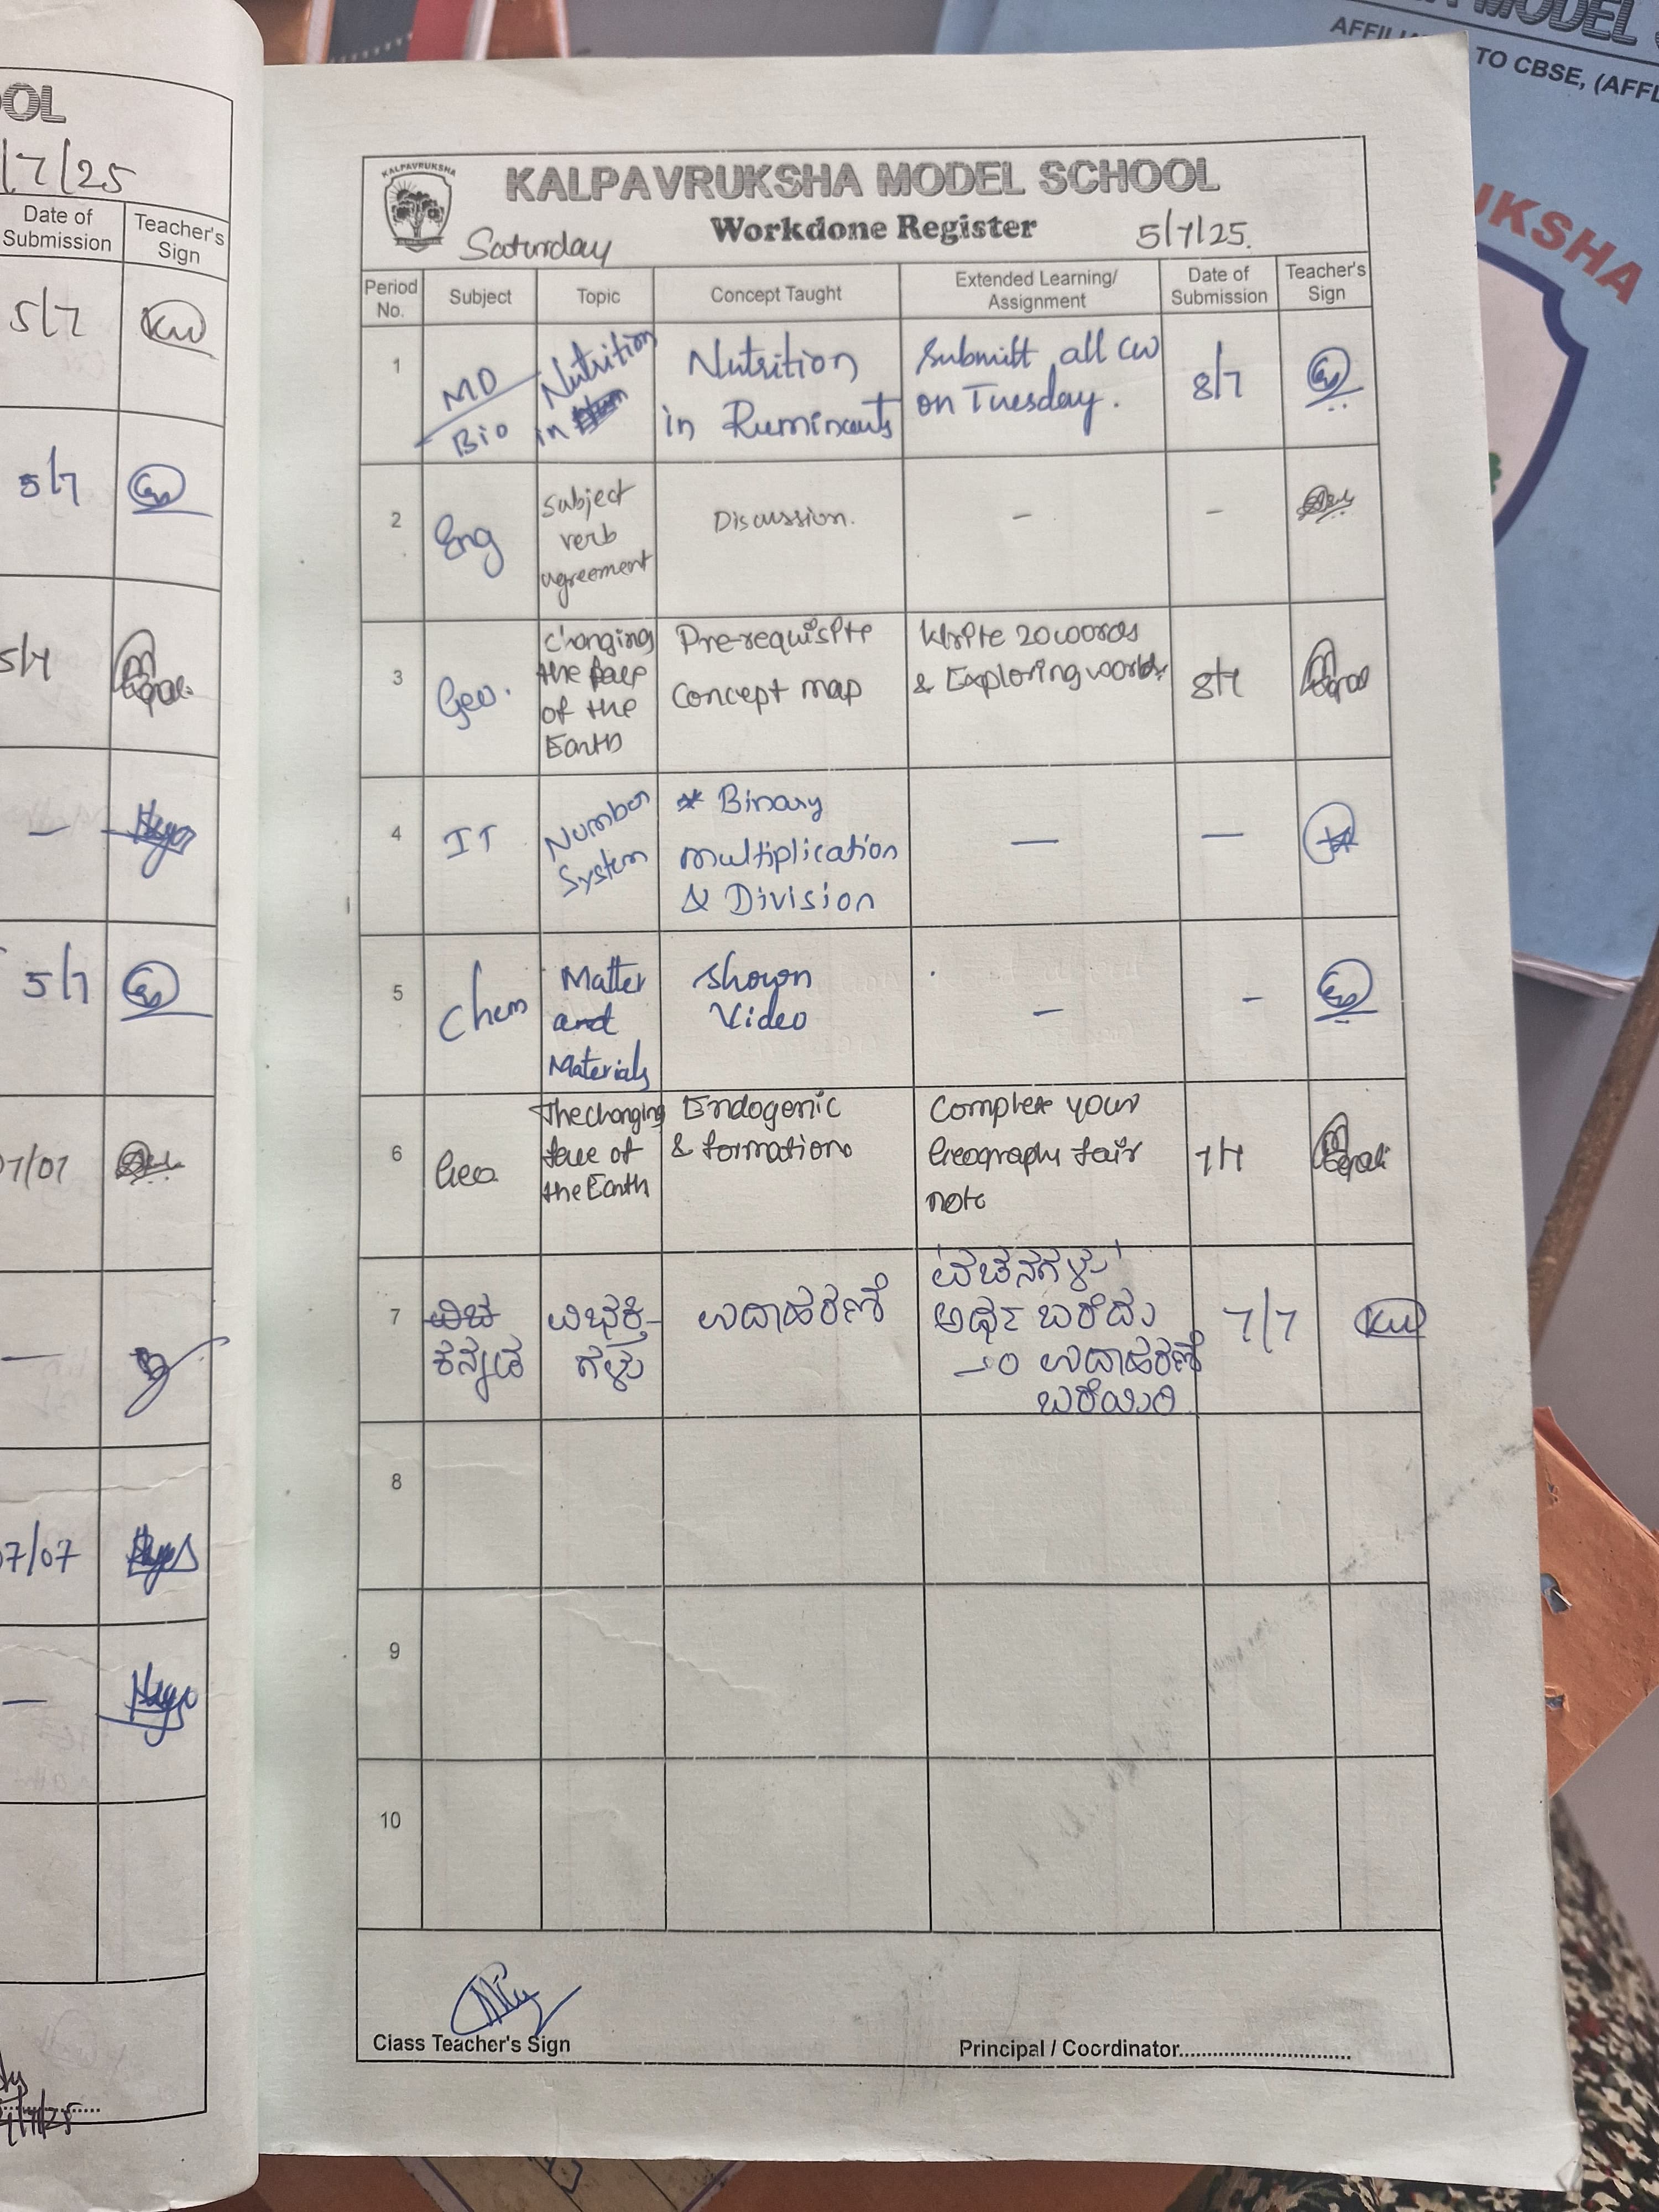 OOL
/7/25
Date of Submission
Teacher's Sign
5/7
KW
5/7
5/7
—
5/7
07/07
—
07/07
—
4/7/25
MODEL
AFFILIA
TO CBSE, (AFFL
UKSHA
KALPAVRUKSHA
KALPAVRUKSHA MODEL SCHOOL
Workdone Register
Saturday
5/7/25.
Period No.
Subject
Topic
Concept Taught
Extended Learning/ Assignment
Date of Submission
Teacher's Sign
1
MD
Bio
Nutrition
in
Nutrition
in Ruminants
Submitt all CW
on Tuesday.
8/7
2
Eng
Subject
verb
agreement
Discussion.
–
–
3
Geo.
Changing
the face
of the
Earth
Pre-requisite
Concept map
Write 20 words
& Exploring world
8/7
4
IT
Number
System
* Binary
multiplication
& Division
—
—
5
Chem
Matter
and
Materials
Shown
Video
–
–
6
Geo
The changing
face of
the Earth
Endogenic
& formation
Complete your
Geography fair
note
7/7
7
ಕನ್ನಡ
ವಿಭಕ್ತಿ
ಗಳು
ಉದಾಹರಣೆ
'ವಚನಗಳು'
ಅರ್ಥ ಬರೆದು
ಉದಾಹರಣೆ
ಬರೆಯಿರಿ
7/7
KW
8
9
10
Class Teacher's Sign
Principal / Coordinator..............................